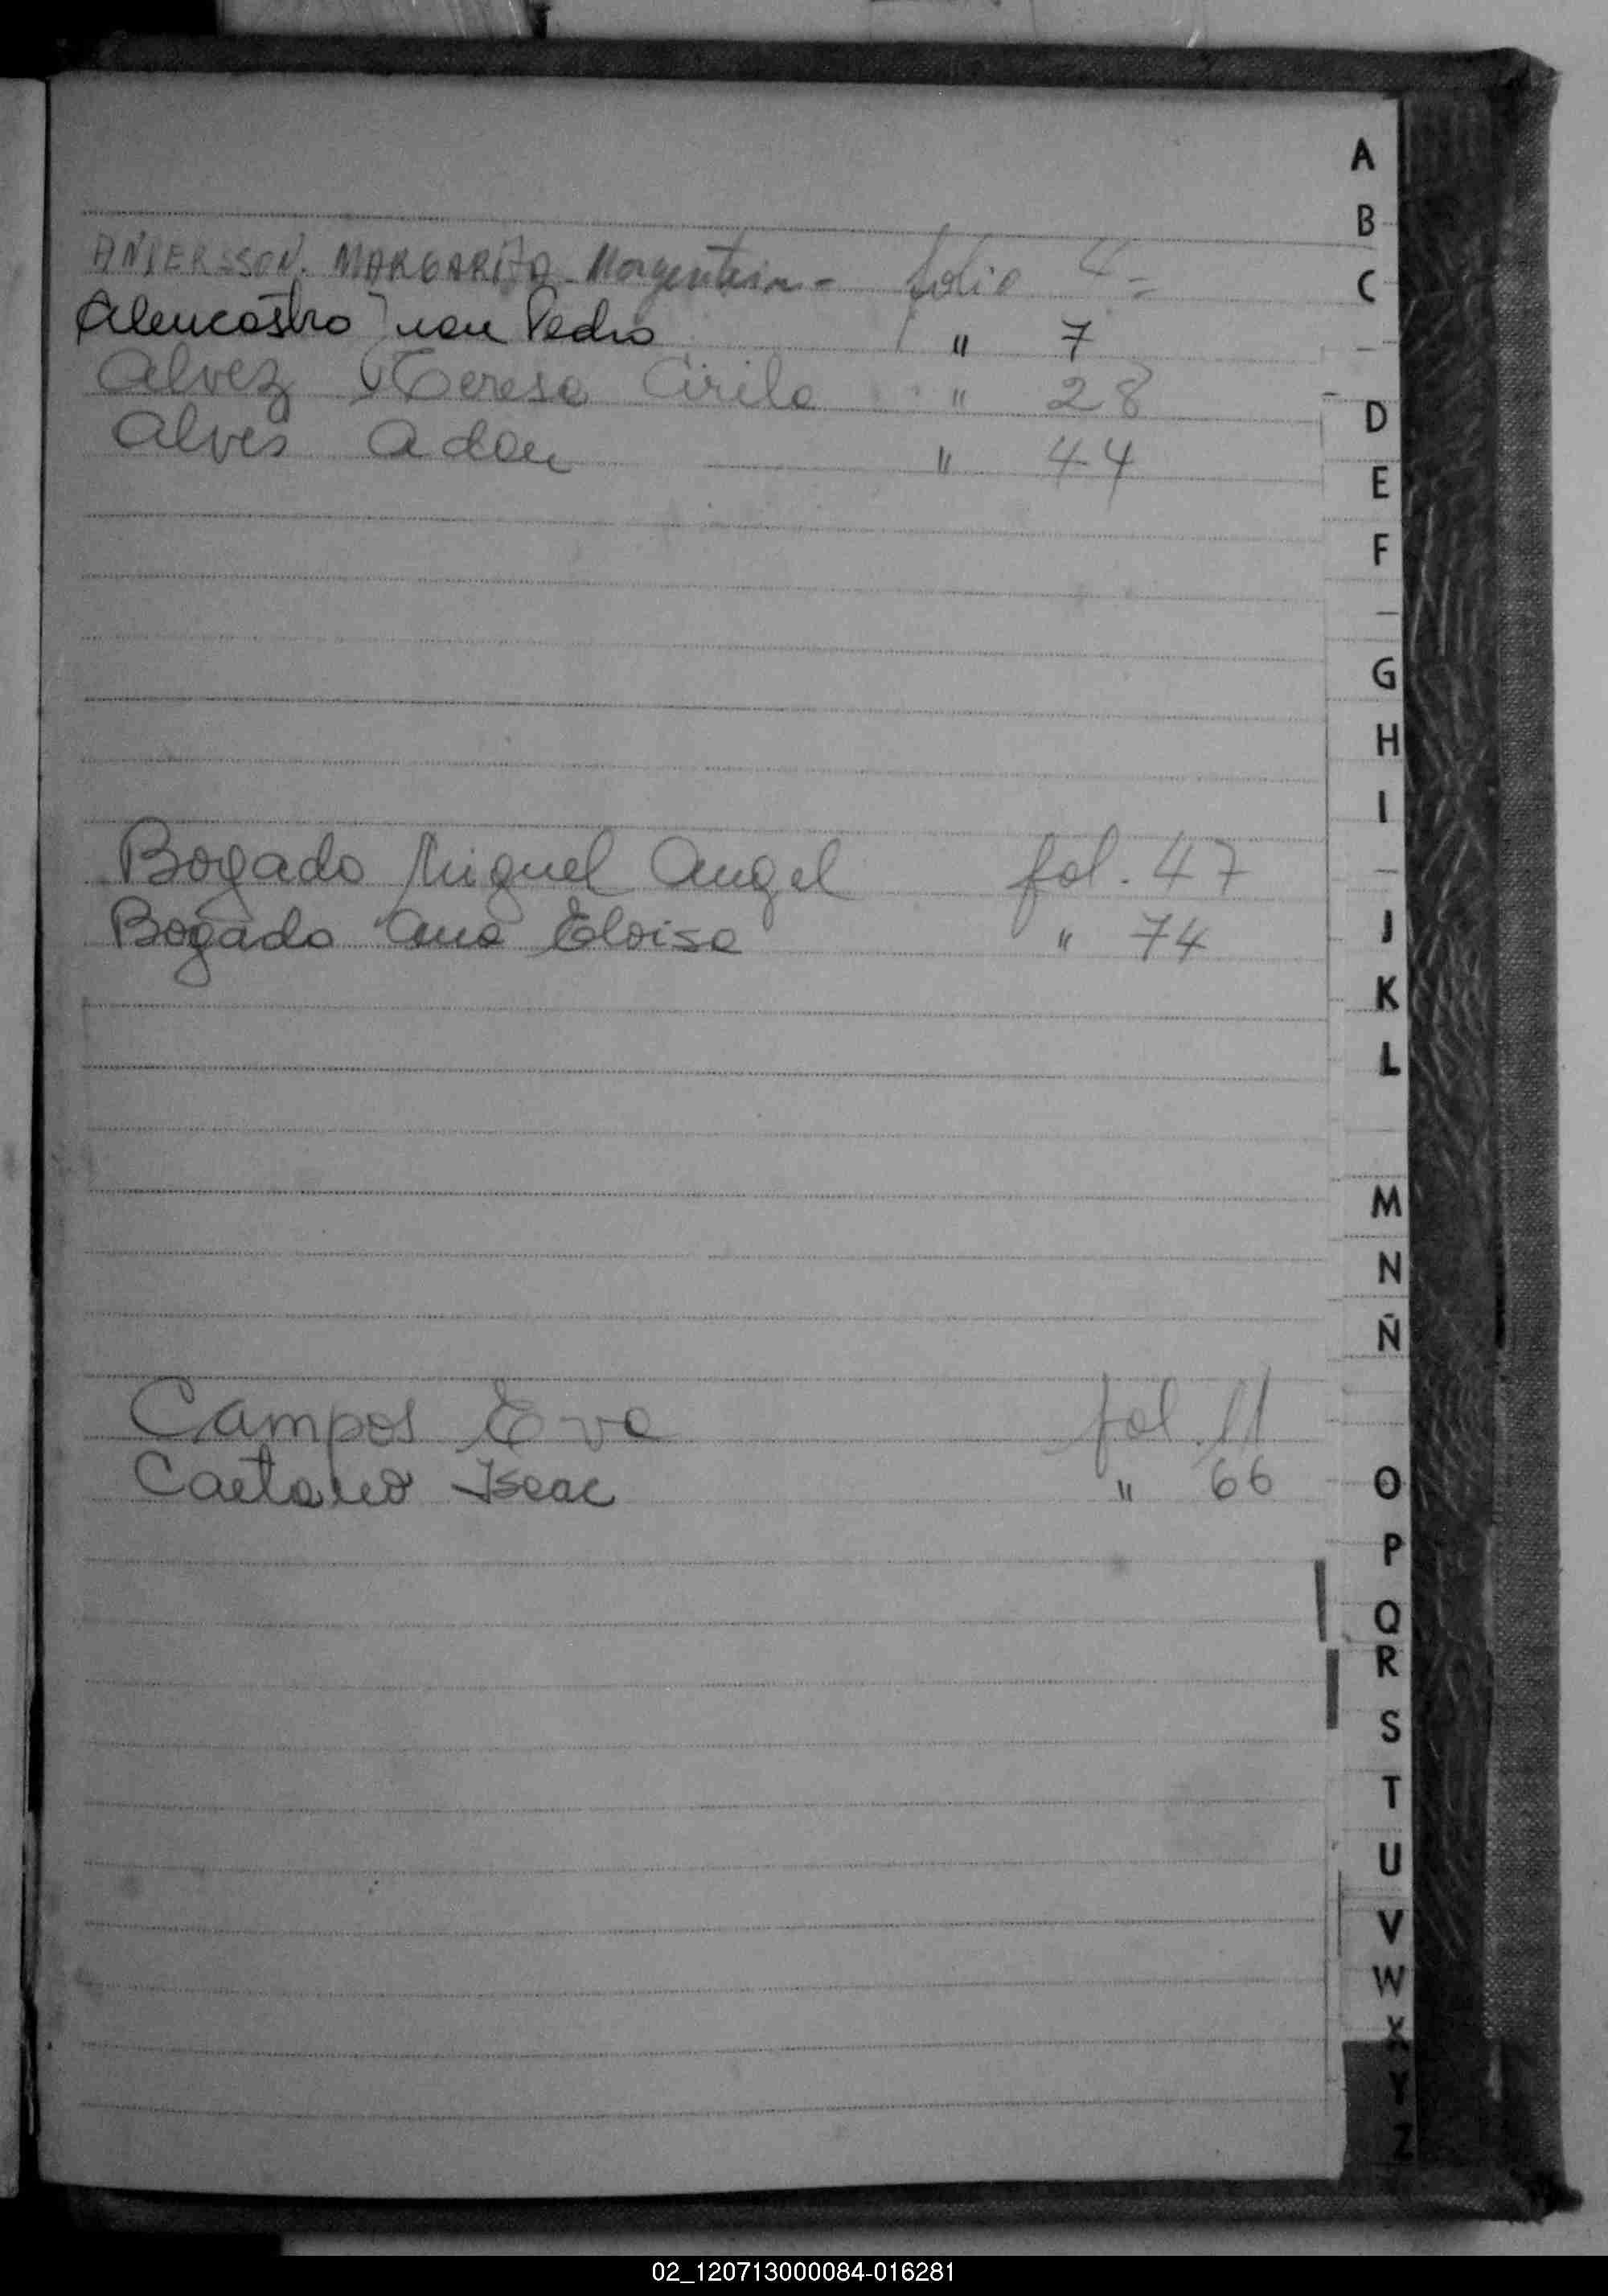 ANDERSSON. MARGARITA - Morgenstern - folio 4 =
Alencastro Juan Pedro " 7
Alvez Teresa Cirila " 28
Alves Adan " 44
Bogado Miguel Angel fol. 47
Bogado Ana Eloisa " 74
Campos Eva fol. 11
Caetano Isaac " 66
A
B
C
D
E
F
G
H
I
J
K
L
M
N
Ñ
O
P
Q
R
S
T
U
V
W
X
Y
Z
02_120713000084-016281